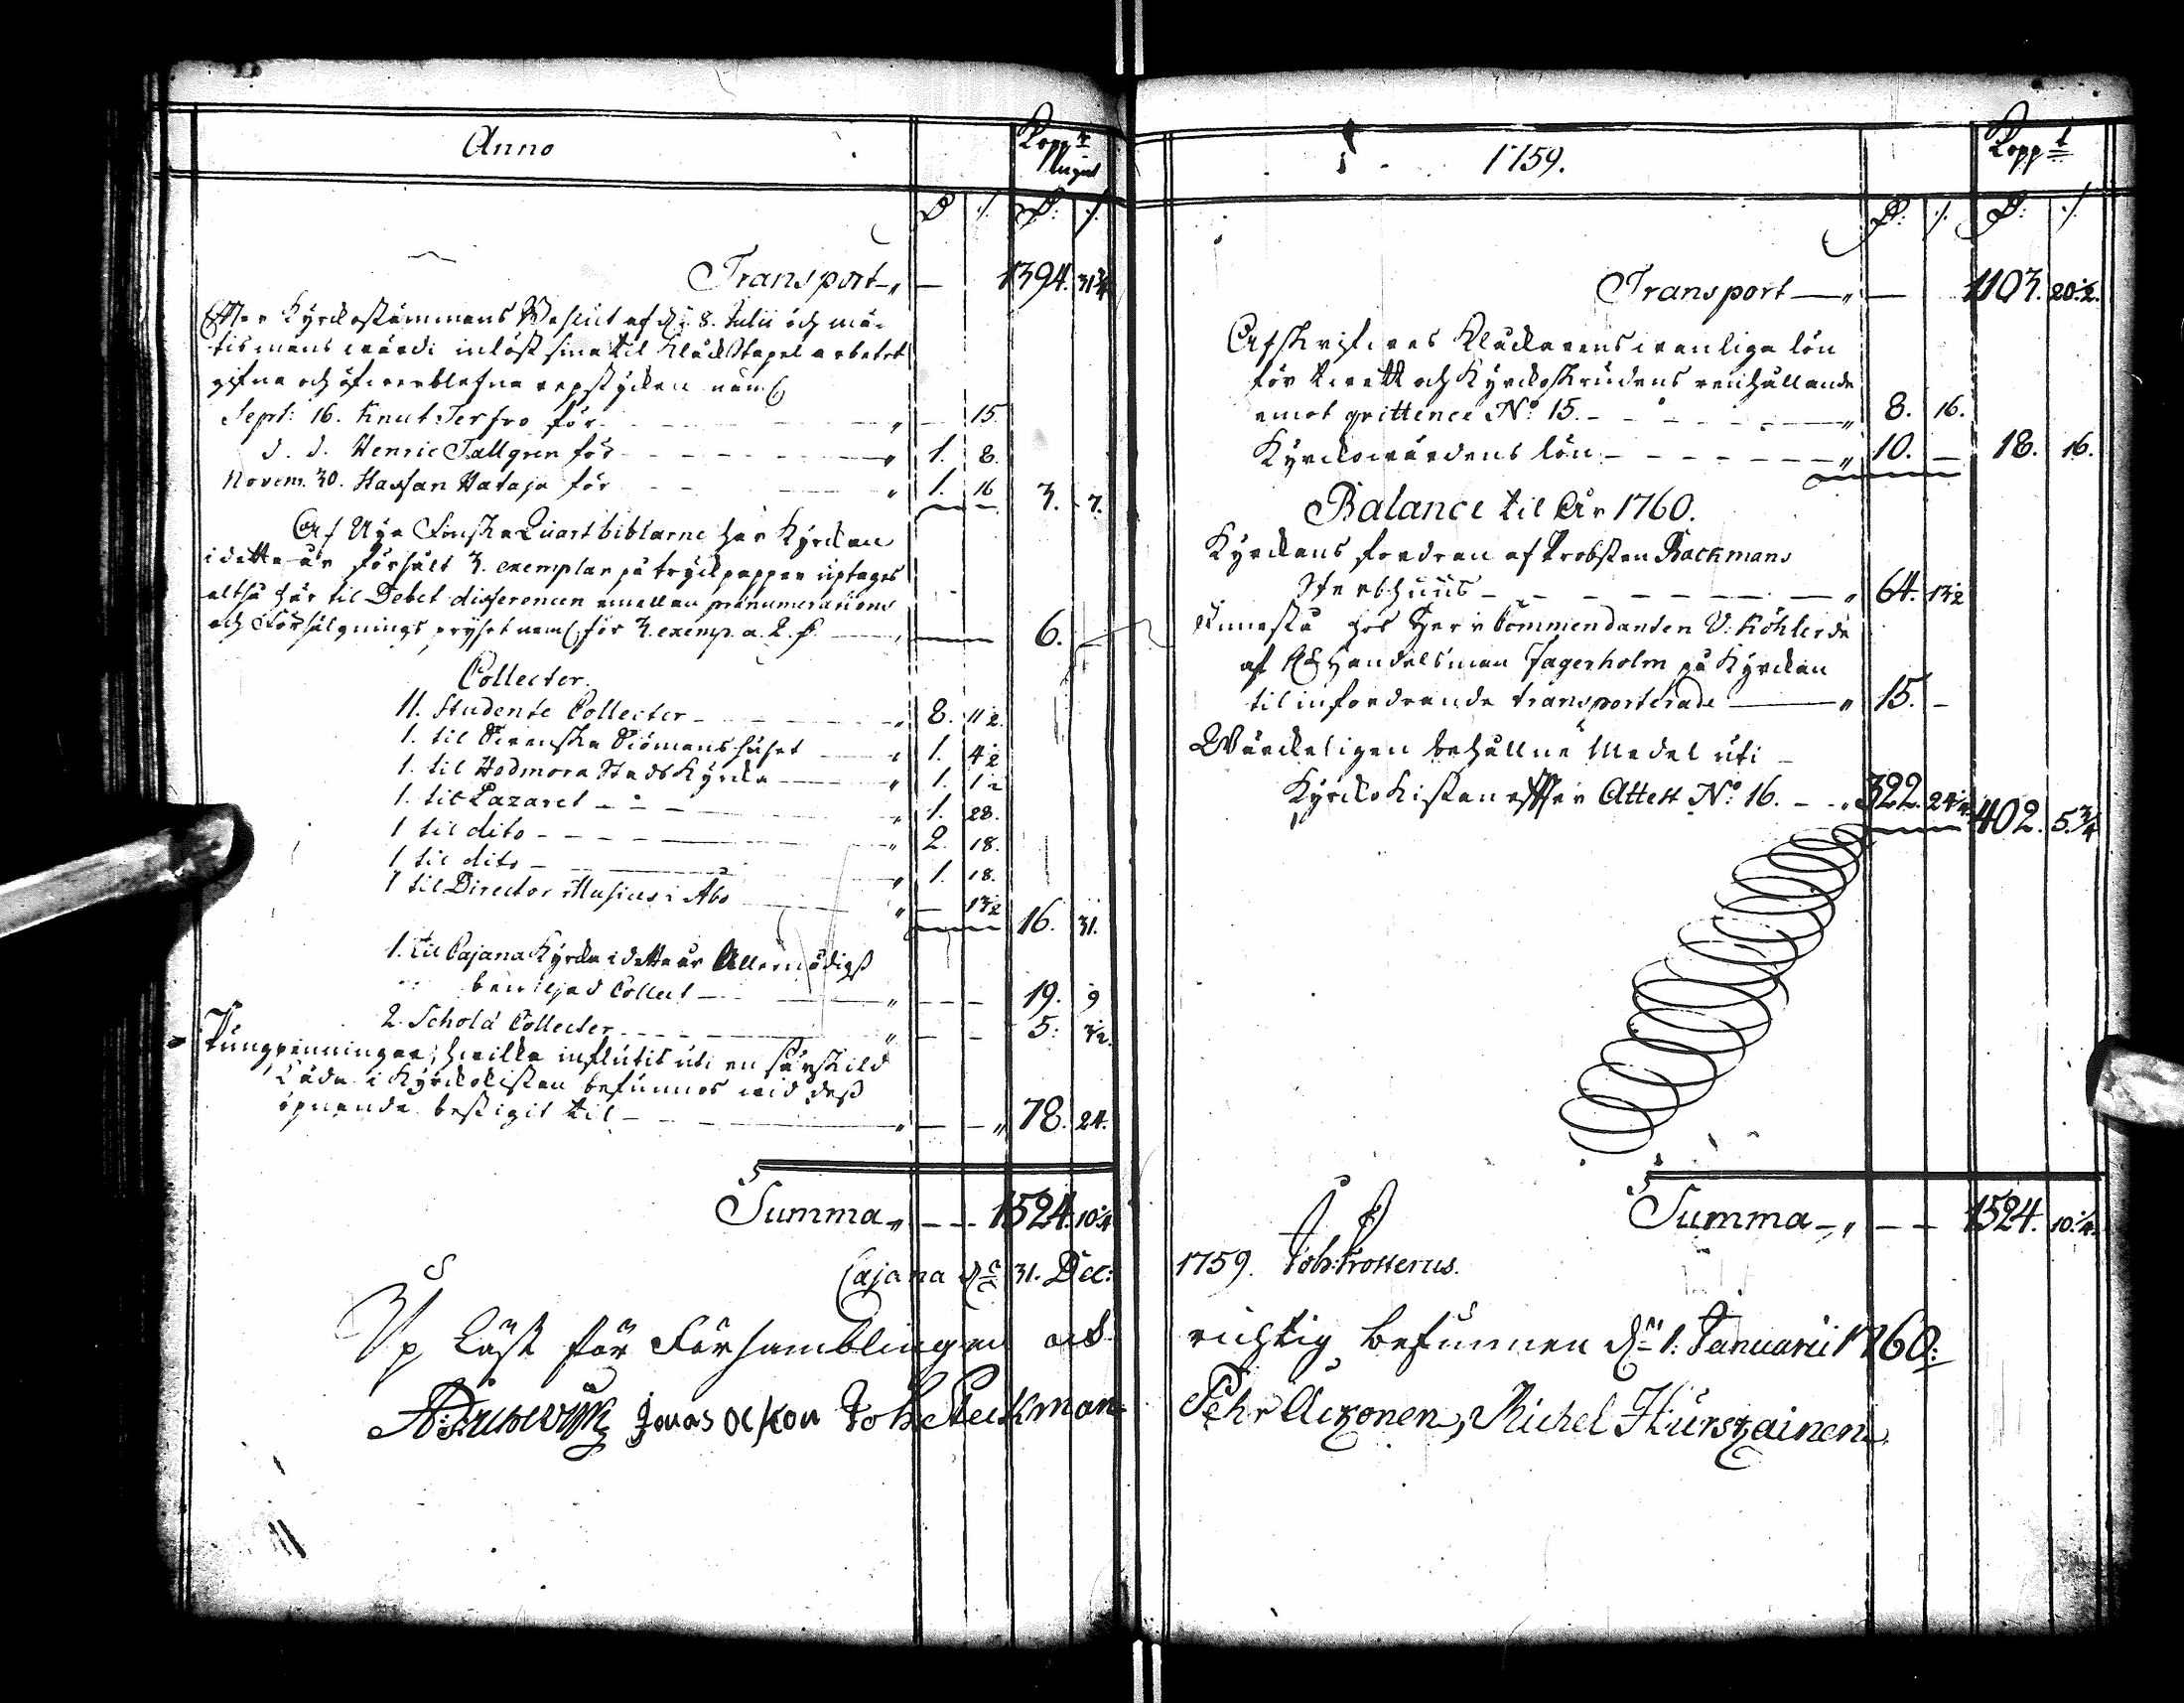 Anno
Kopp.r
D. ./. D: ./.
Transport — 1394. 31 3/4
Efter Kyrckostämmans Beslut af d: 8. Julii och
inlöst sina til Klåckstapel arbetet
gifne och öfwerblefne repstycken näml.
Sept: 16. Knut Terfvo för — 15.
d. d. Henric Tallgren för 1. 8.
Novem. 30. Hassan Hataja för 1. 16 3. 7.
Af Nya Finska Quart biblarne har Kyrckan
i detta år försålt 3. exemplar på tryckpapper uptages
altså här til Debet differencen emellan prænumerations
och Försälgnings pryset neml. för 3. exemp. a. 2. — 6. —
Collecter.
11. Studente Collecter 8. 11 1/2.
1. til Swenska Siömans huset 1. 4 1/2
1. til Hedmora Stads Kyrcka 1. 1 1/2
1. til Lazaret 1. 28.
1 til dito 2. 18.
1 til dito 1. 18.
1 til Director Musices i Åbo — 13 1/2 16. 31.
1. til Cajana Kyrcka i detta år Allernådigst
bewiljad Collect — — 19. 9
2. Schola Collecter — — 5: 3 1/2.
Pungpenningar, hwilka influtit uti en särskild
Låda i Kyrckokistan befunnos wid dess
öpnande bestigit til — — 78. 24.
Summa — — 1524. 10 1/4
Cajana d. 31. Dec:
Up Läst för Församblingen och
Jonas Ockon Joh: Steckman
1759.
Kopp.t
D: ./. D: ./.
Transport — — 1103. 20 1/2.
Afskrifwes Klåckarens wanliga lön
för twätt och Kyrckoskrudens renhållande
emot qvittence No: 15. 8. 16.
Kyrckowärdens lön 10. — 18. 16.
Balance til År 1760.
Kyrckans fordran af Probsten Backmans
Sterbhuus 64. 13 1/2
Innestå hos Herr Commendanten V: Köhler de
af Handelsman Jagerholm på Kyrckan
til infordrande transporterade 15. —
Wärckeligen behållne Medel uti
Kyrckokistan efter Attest No: 16. 322. 24 1/4. 402. 5 3/4
Summa — — 1524. 10 1/4.
1759. Joh: Frosterus.
richtig befunnen d: 1: Januarii 1760:
Pehr Ackonen, Michel Hurskainen